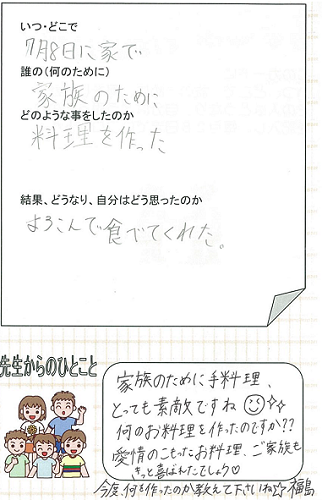 いつ・どこで
7月8日に家で
誰の(何のために)
家族のために
どのような事をしたのか
料理を作った
結果、どうなり、自分はどう思ったのか
よろこんで食べてくれた。
先生からのひとこと
家族のために手料理、
とっても素敵ですね
何のお料理を作ったのですか??
愛情のこもったお料理、ご家族も
きっと喜ばれたでしょう♡
今度、何を作ったのか教えて下さいね☆ 福島